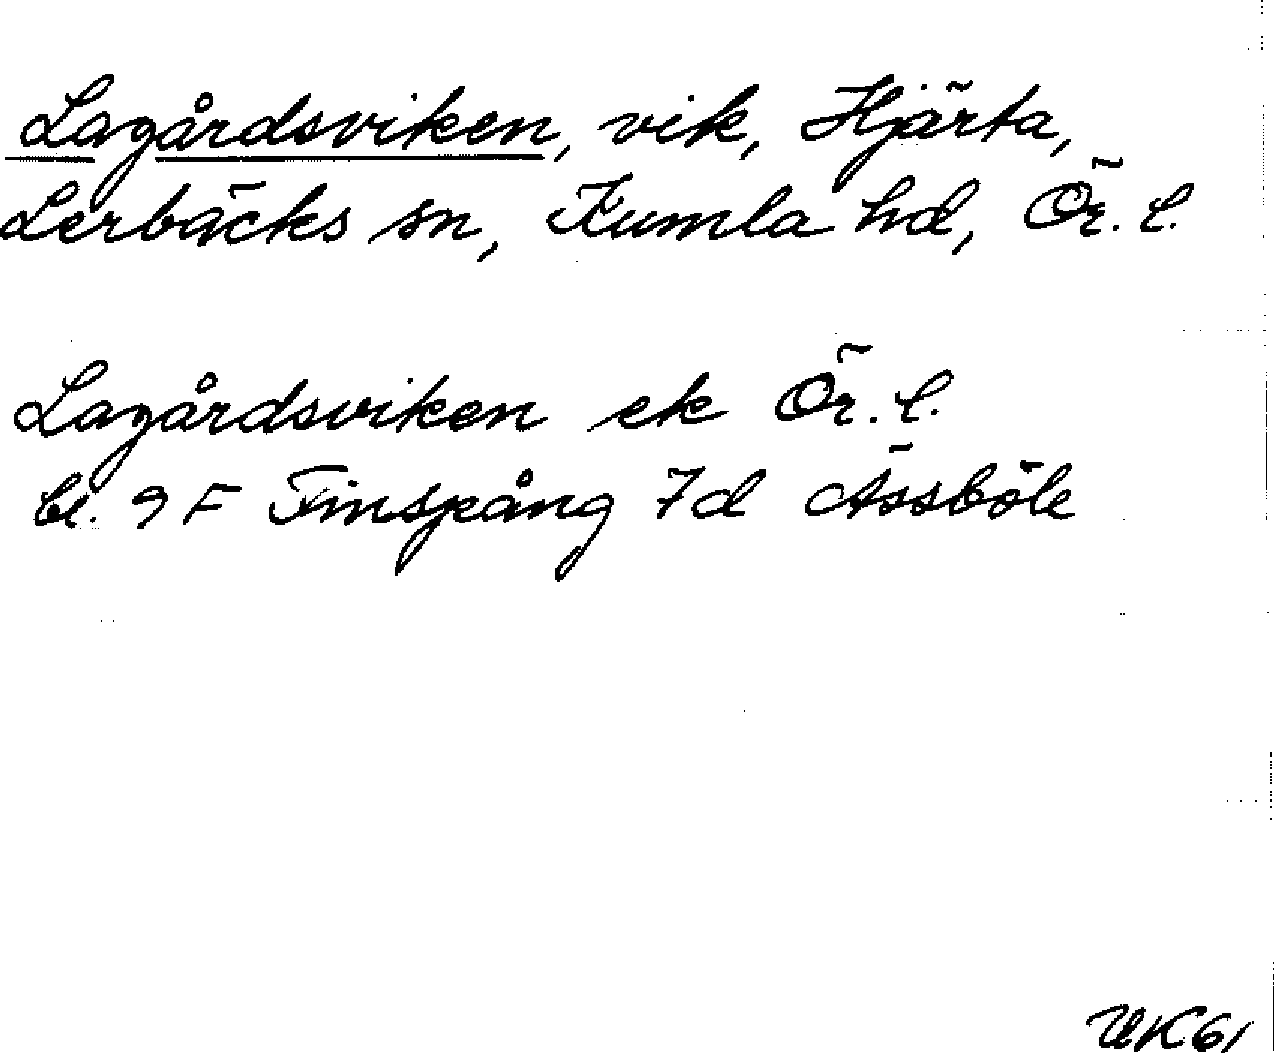 Lagårdsviken, vik, Hjärta,
Lerbäcks sn, Kumla hd, Ör. l.
Lagårdsviken ek Ör. l.
bl. 9 F Finspång 7d Åssböle
UK61